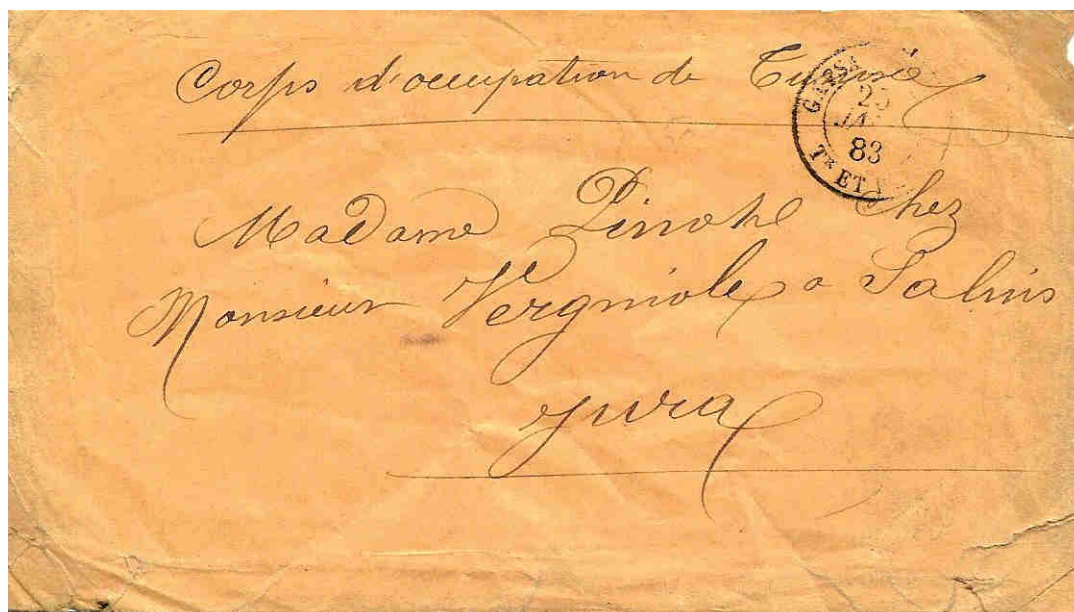 Corps d'occupation de Tunisie
GAFSA
25
JAN
83
TR ET
Madame Pinohe chez
Monsieur Vergniole a Salins
Jura